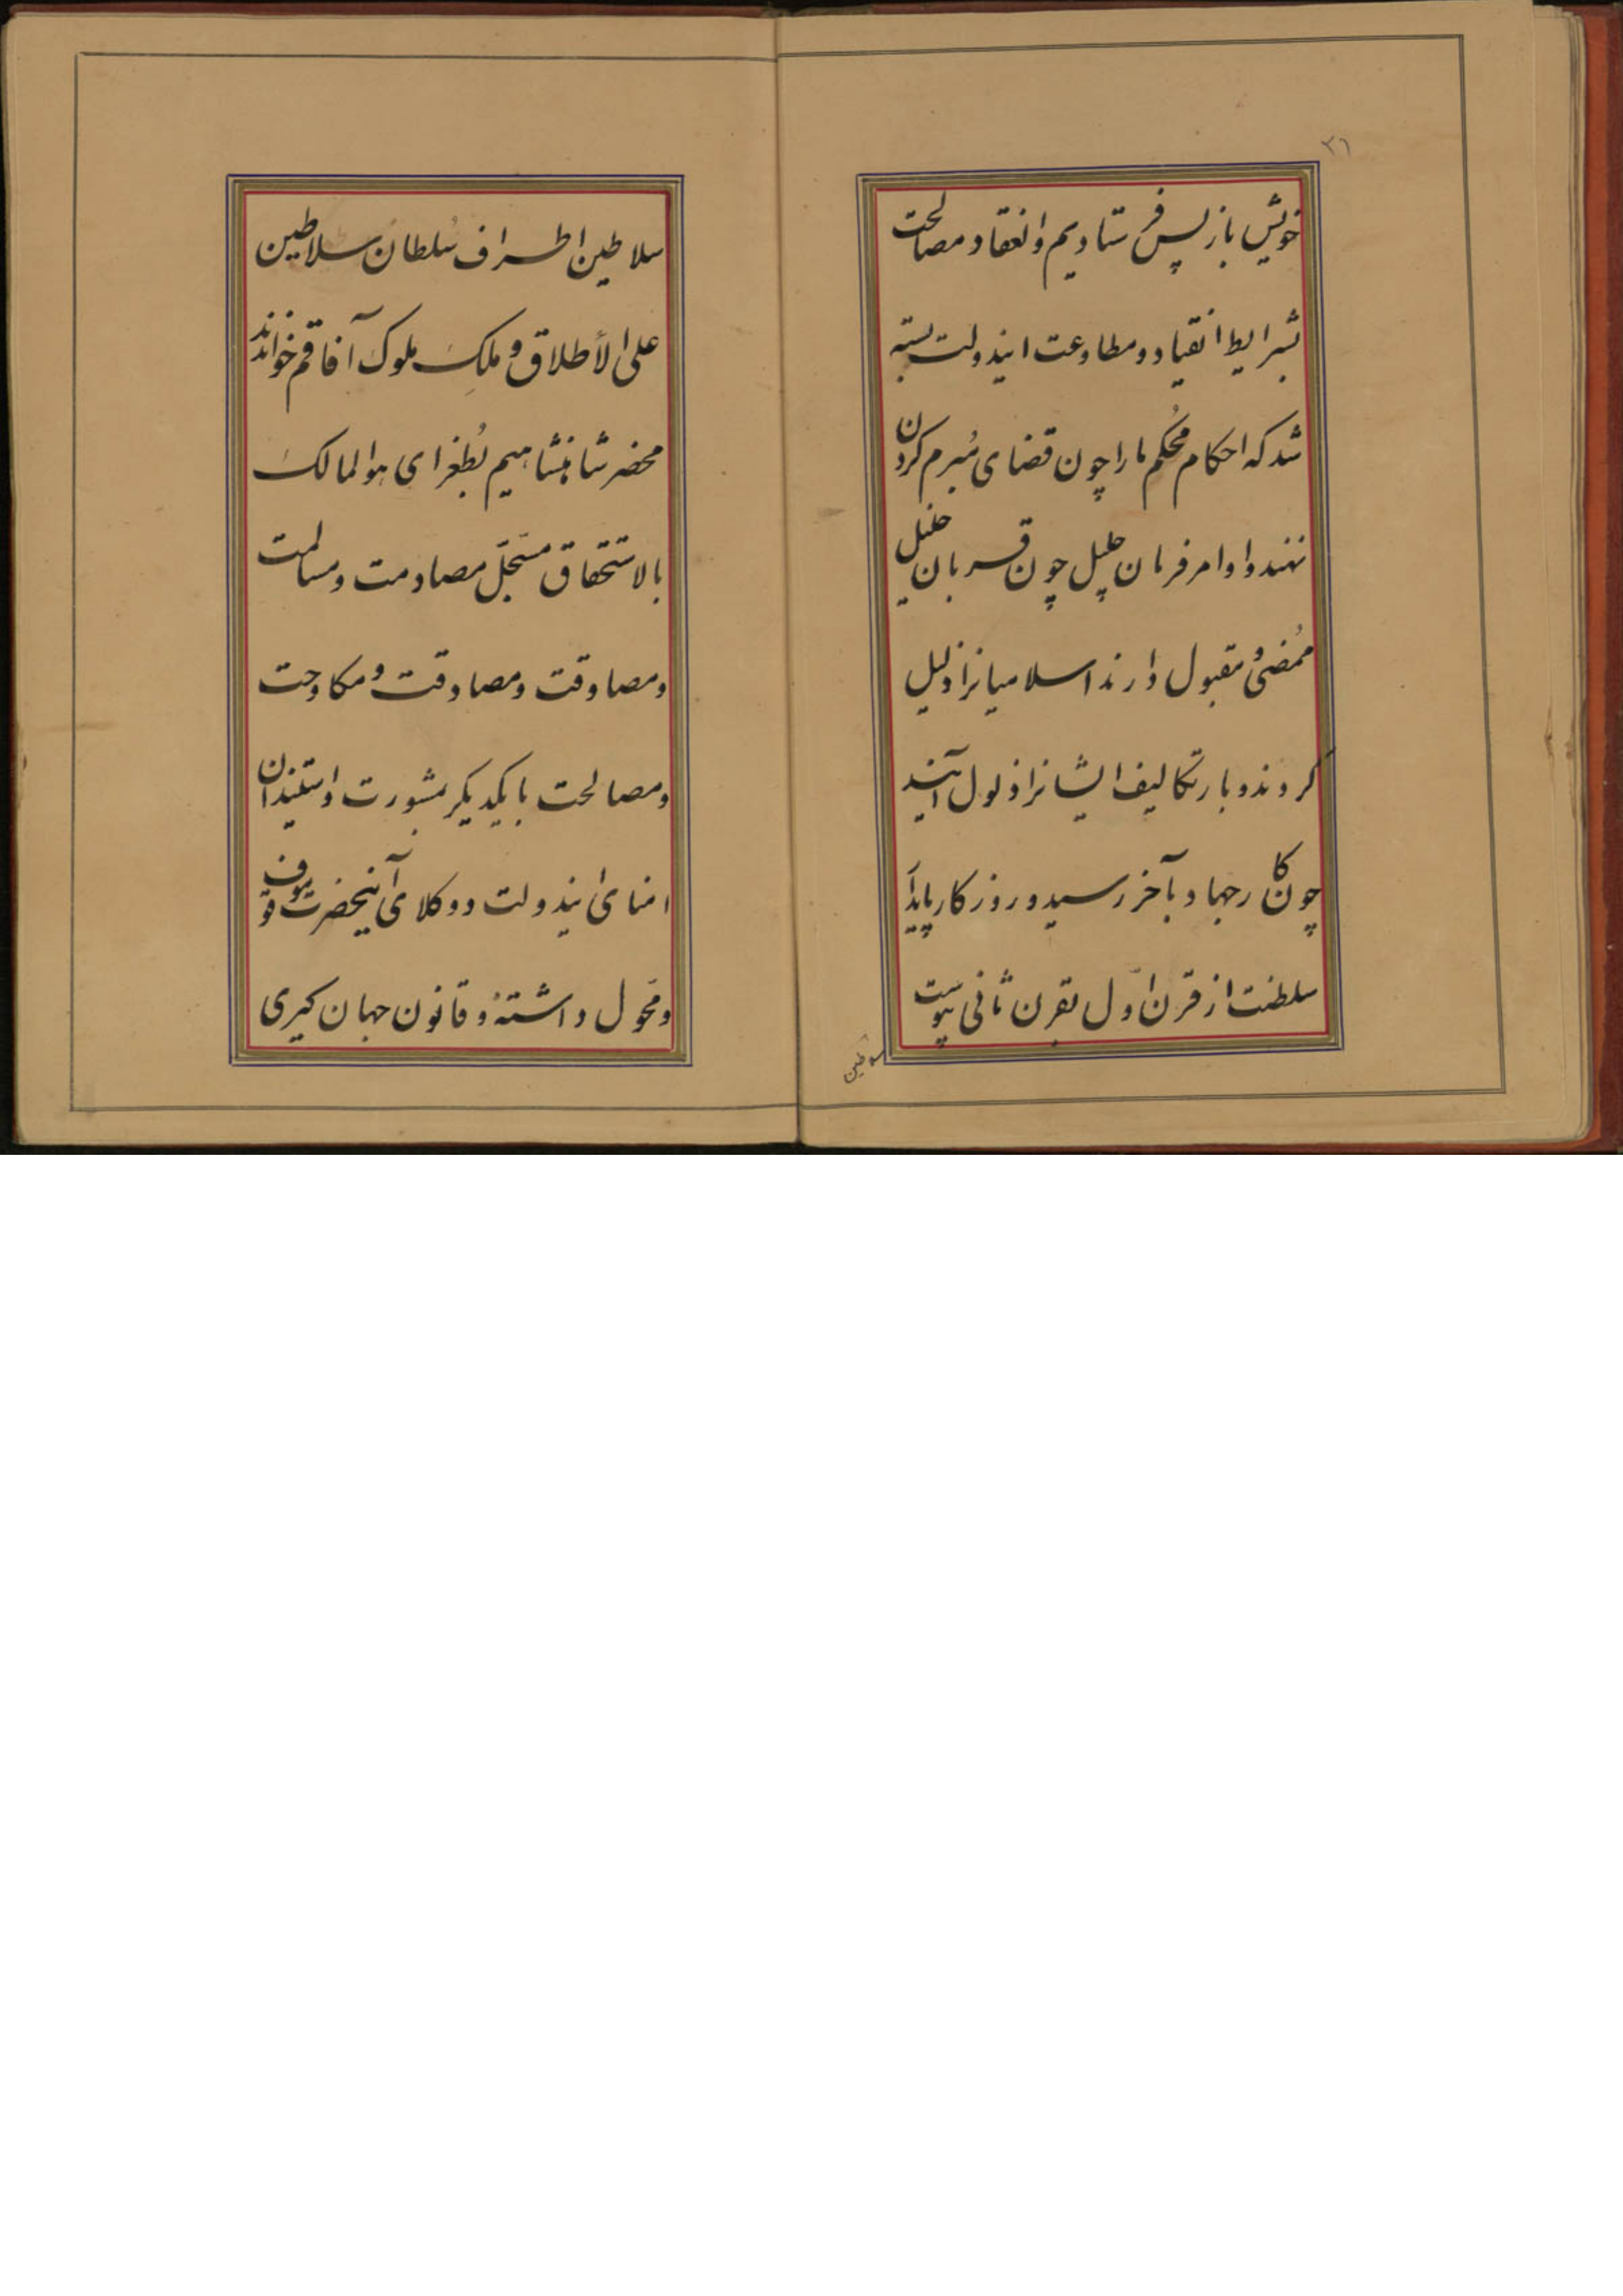 ٣٦
خویش باز پس فرستادیم و انعقاد مصالحت
بشرایط انقیاد و مطاوعت ایندولت بسته
شد که احکام محکم ما را چون قضای مُبرم کردن
نهند و اوامر فرمان جلیل چون قربان خلیل
مُمضی و مقبول دارند اسلامیانرا ذلیل
کردند و بار تکالیف ایشانرا ذلول آیند
چون کار جهاد بآخر رسید و روزکار پایدار
سلطنت از قرن اوّل بقرن ثانی پیوست
سلاطین
سلاطین اطراف سُلطان سلاطین
علی الأطلاق و ملک ملوک آفاقم خواندند
محضر شاهنشاهیم بُطغرای هوالمالک
بالاستحقاق مسَجّل مصادمت و مسالمت
و مصادقت و مکاوحت
و مصالحت با یکدیکر بمشورت و استیذان
امنای ایندولت و وکلای آنحضرت موقوف
و مَحول داشته و قانون جهان کیری